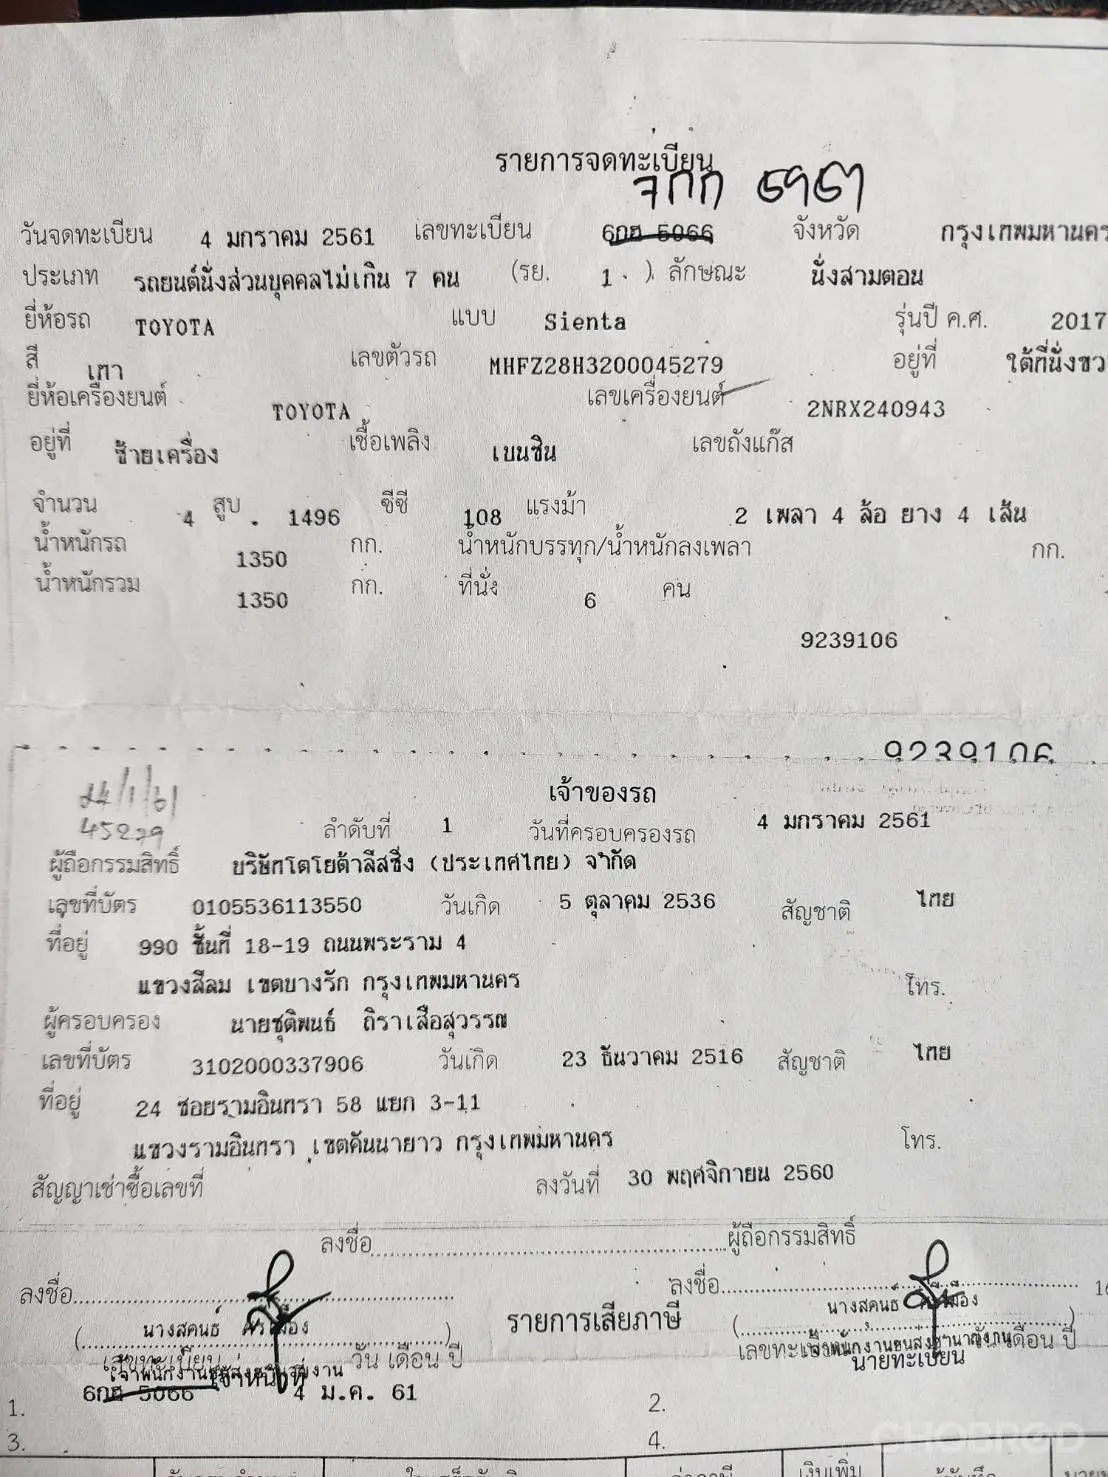 รายการจดทะเบียน
วันจดทะเบียน 4 มกราคม 2561 เลขทะเบียน 6กฮ 5066 จังหวัด กรุงเทพมหานคร
ประเภท รถยนต์นั่งส่วนบุคคลไม่เกิน 7 คน (รย. 1 ) ลักษณะ นั่งสามตอน
ยี่ห้อรถ TOYOTA แบบ Sienta รุ่นปี ค.ศ. 2017
สี เทา เลขตัวรถ MHFZ28H3200045279 อยู่ที่ ใต้ที่นั่งขวา
ยี่ห้อเครื่องยนต์ TOYOTA เลขเครื่องยนต์ 2NRX240943
อยู่ที่ ซ้ายเครื่อง เชื้อเพลิง เบนซิน เลขถังแก๊ส
จำนวน 4 สูบ 1496 ซีซี 108 แรงม้า 2 เพลา 4 ล้อ ยาง 4 เส้น
น้ำหนักรถ 1350 กก. น้ำหนักบรรทุก/น้ำหนักลงเพลา กก.
น้ำหนักรวม 1350 กก. ที่นั่ง 6 คน
9239106
9239106
24/1/61
45279
เจ้าของรถ
ลำดับที่ 1 วันที่ครอบครองรถ 4 มกราคม 2561
ผู้ถือกรรมสิทธิ์ บริษัทโตโยต้าลีสซิ่ง (ประเทศไทย) จำกัด
เลขที่บัตร 0105536113550 วันเกิด 5 ตุลาคม 2536 สัญชาติ ไทย
ที่อยู่ 990 ชั้นที่ 18-19 ถนนพระราม 4
แขวงสีลม เขตบางรัก กรุงเทพมหานคร โทร.
ผู้ครอบครอง นายชุติพนธ์ ถิราเสือสุวรรณ
เลขที่บัตร 3102000337906 วันเกิด 23 ธันวาคม 2516 สัญชาติ ไทย
ที่อยู่ 24 ซอยรามอินทรา 58 แยก 3-11
แขวงรามอินทรา เขตคันนายาว กรุงเทพมหานคร โทร.
สัญญาเช่าซื้อเลขที่ ลงวันที่ 30 พฤศจิกายน 2560
ลงชื่อ ผู้ถือกรรมสิทธิ์
ลงชื่อ ลงชื่อ
รายการเสียภาษี
(นางสคนธ์ ศรีเมือง) (นางสคนธ์ ศรีเมือง)
เลขทะเบียน วัน เดือน ปี เลขทะเบียน วัน เดือน ปี
เจ้าพนักงานขนส่งชำนาญงาน เจ้าพนักงานขนส่งชำนาญงาน
เจ้าหน้าที่ นายทะเบียน
1. 6กฮ 5066 4 ม.ค. 61 2.
3. 4.
CHOBROD